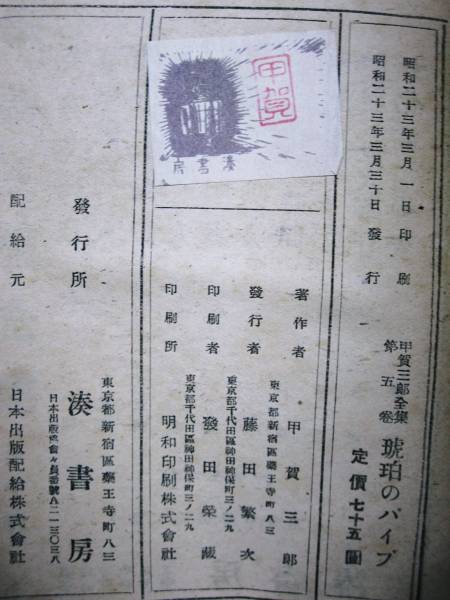 昭和二十三年三月一日印刷
昭和二十三年三月三十日發行
甲賀三郎全集
第五卷
琥珀のパイプ
定價七十五圓
甲賀
湊書房
著作者 甲賀三郎
東京都新宿區藥王寺町八三
發行者 藤田繁次
東京都千代田區神田神保町三ノ二九
印刷者 發田榮藏
東京都千代田區神田神保町三ノ二九
印刷所 明和印刷株式會社
發行所
東京都新宿區藥王寺町八三
湊書房
日本出版協會々員番號A二一三〇三八
配給元 日本出版配給株式會社